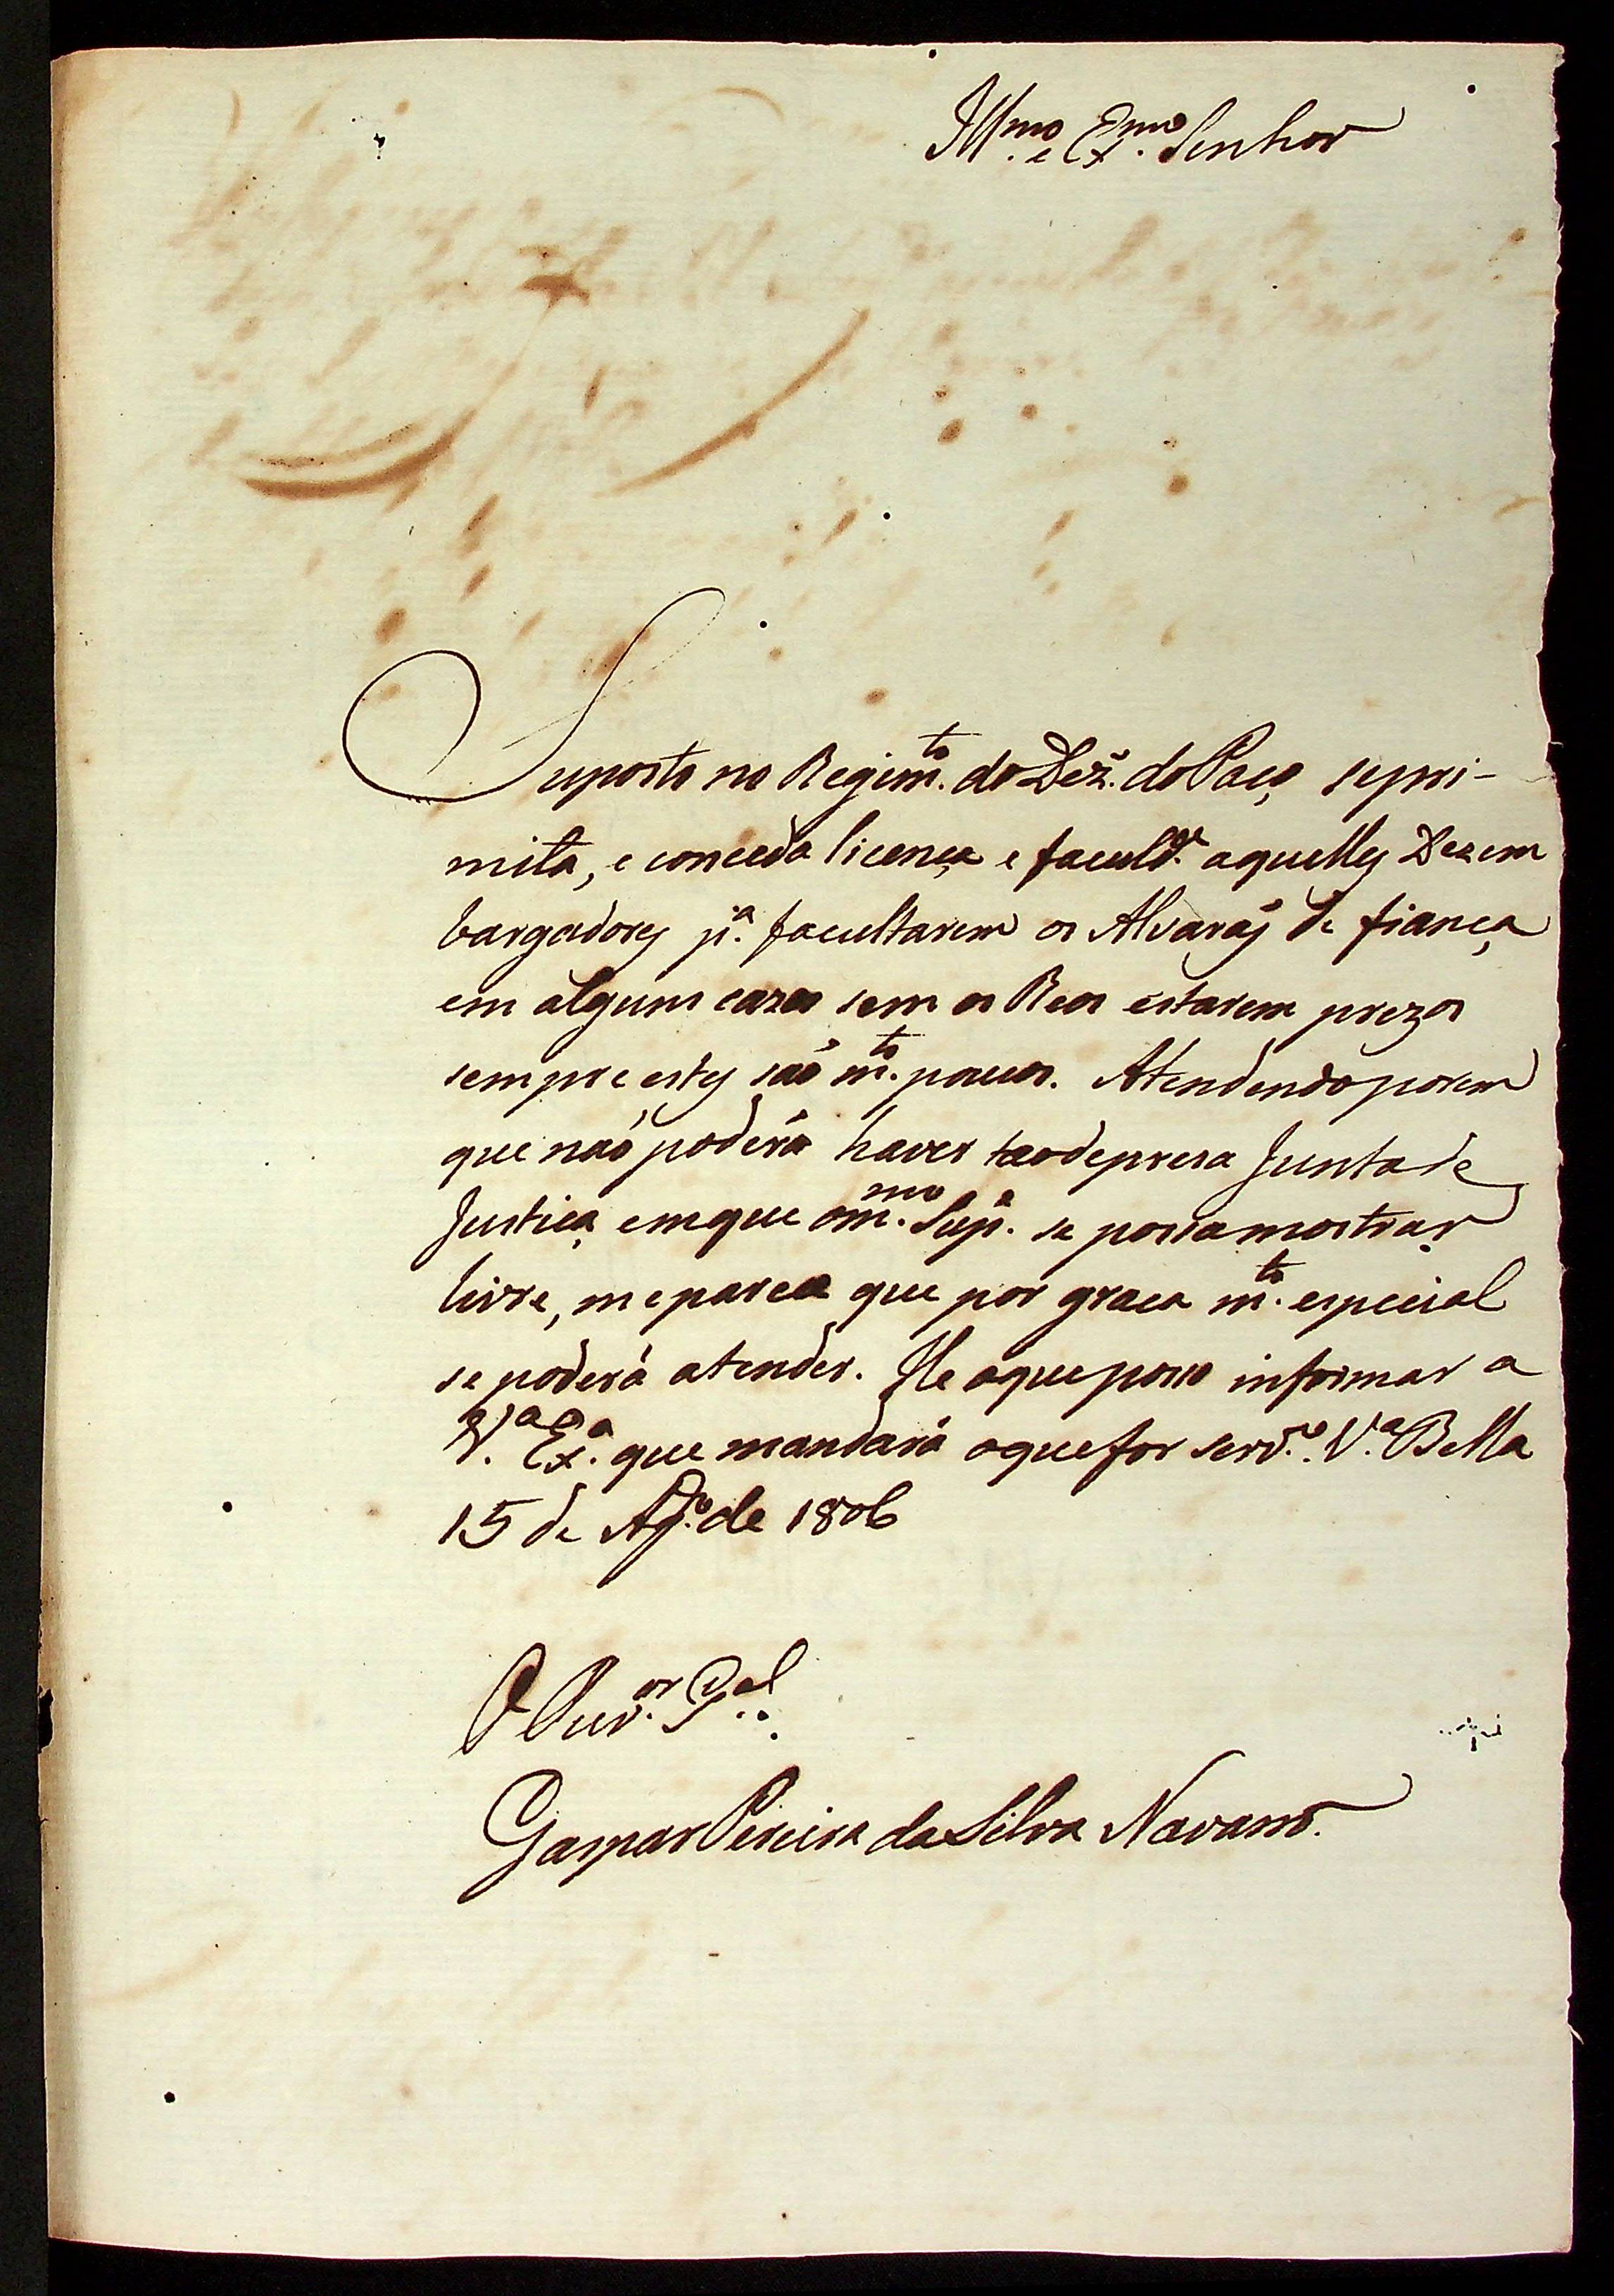 Illmo. e Exmo. Senhor
Suposto no Regimto. do Dez. do Paço se pri-
mita, e conceda licença e faculde. aquelles Dezem
bargadores pa. facultarem os Alvarás de fiança
em alguns cazos sem os Reos estarem prezos
sempre estes são mto. poucos. Atendendo porem
que não poderá haver tão depresa Junta de
Justiça em que o mmo. Supe. se possa mostrar
livre, me parece que por graça mto. especial
se poderá atender. He o que posso informar a
Va. Exa. que mandará o que for servo. Va. Bella
15 de Ago. de 1806
O Ouvor. Gal.
Gaspar Pereira da Silva Navarro.